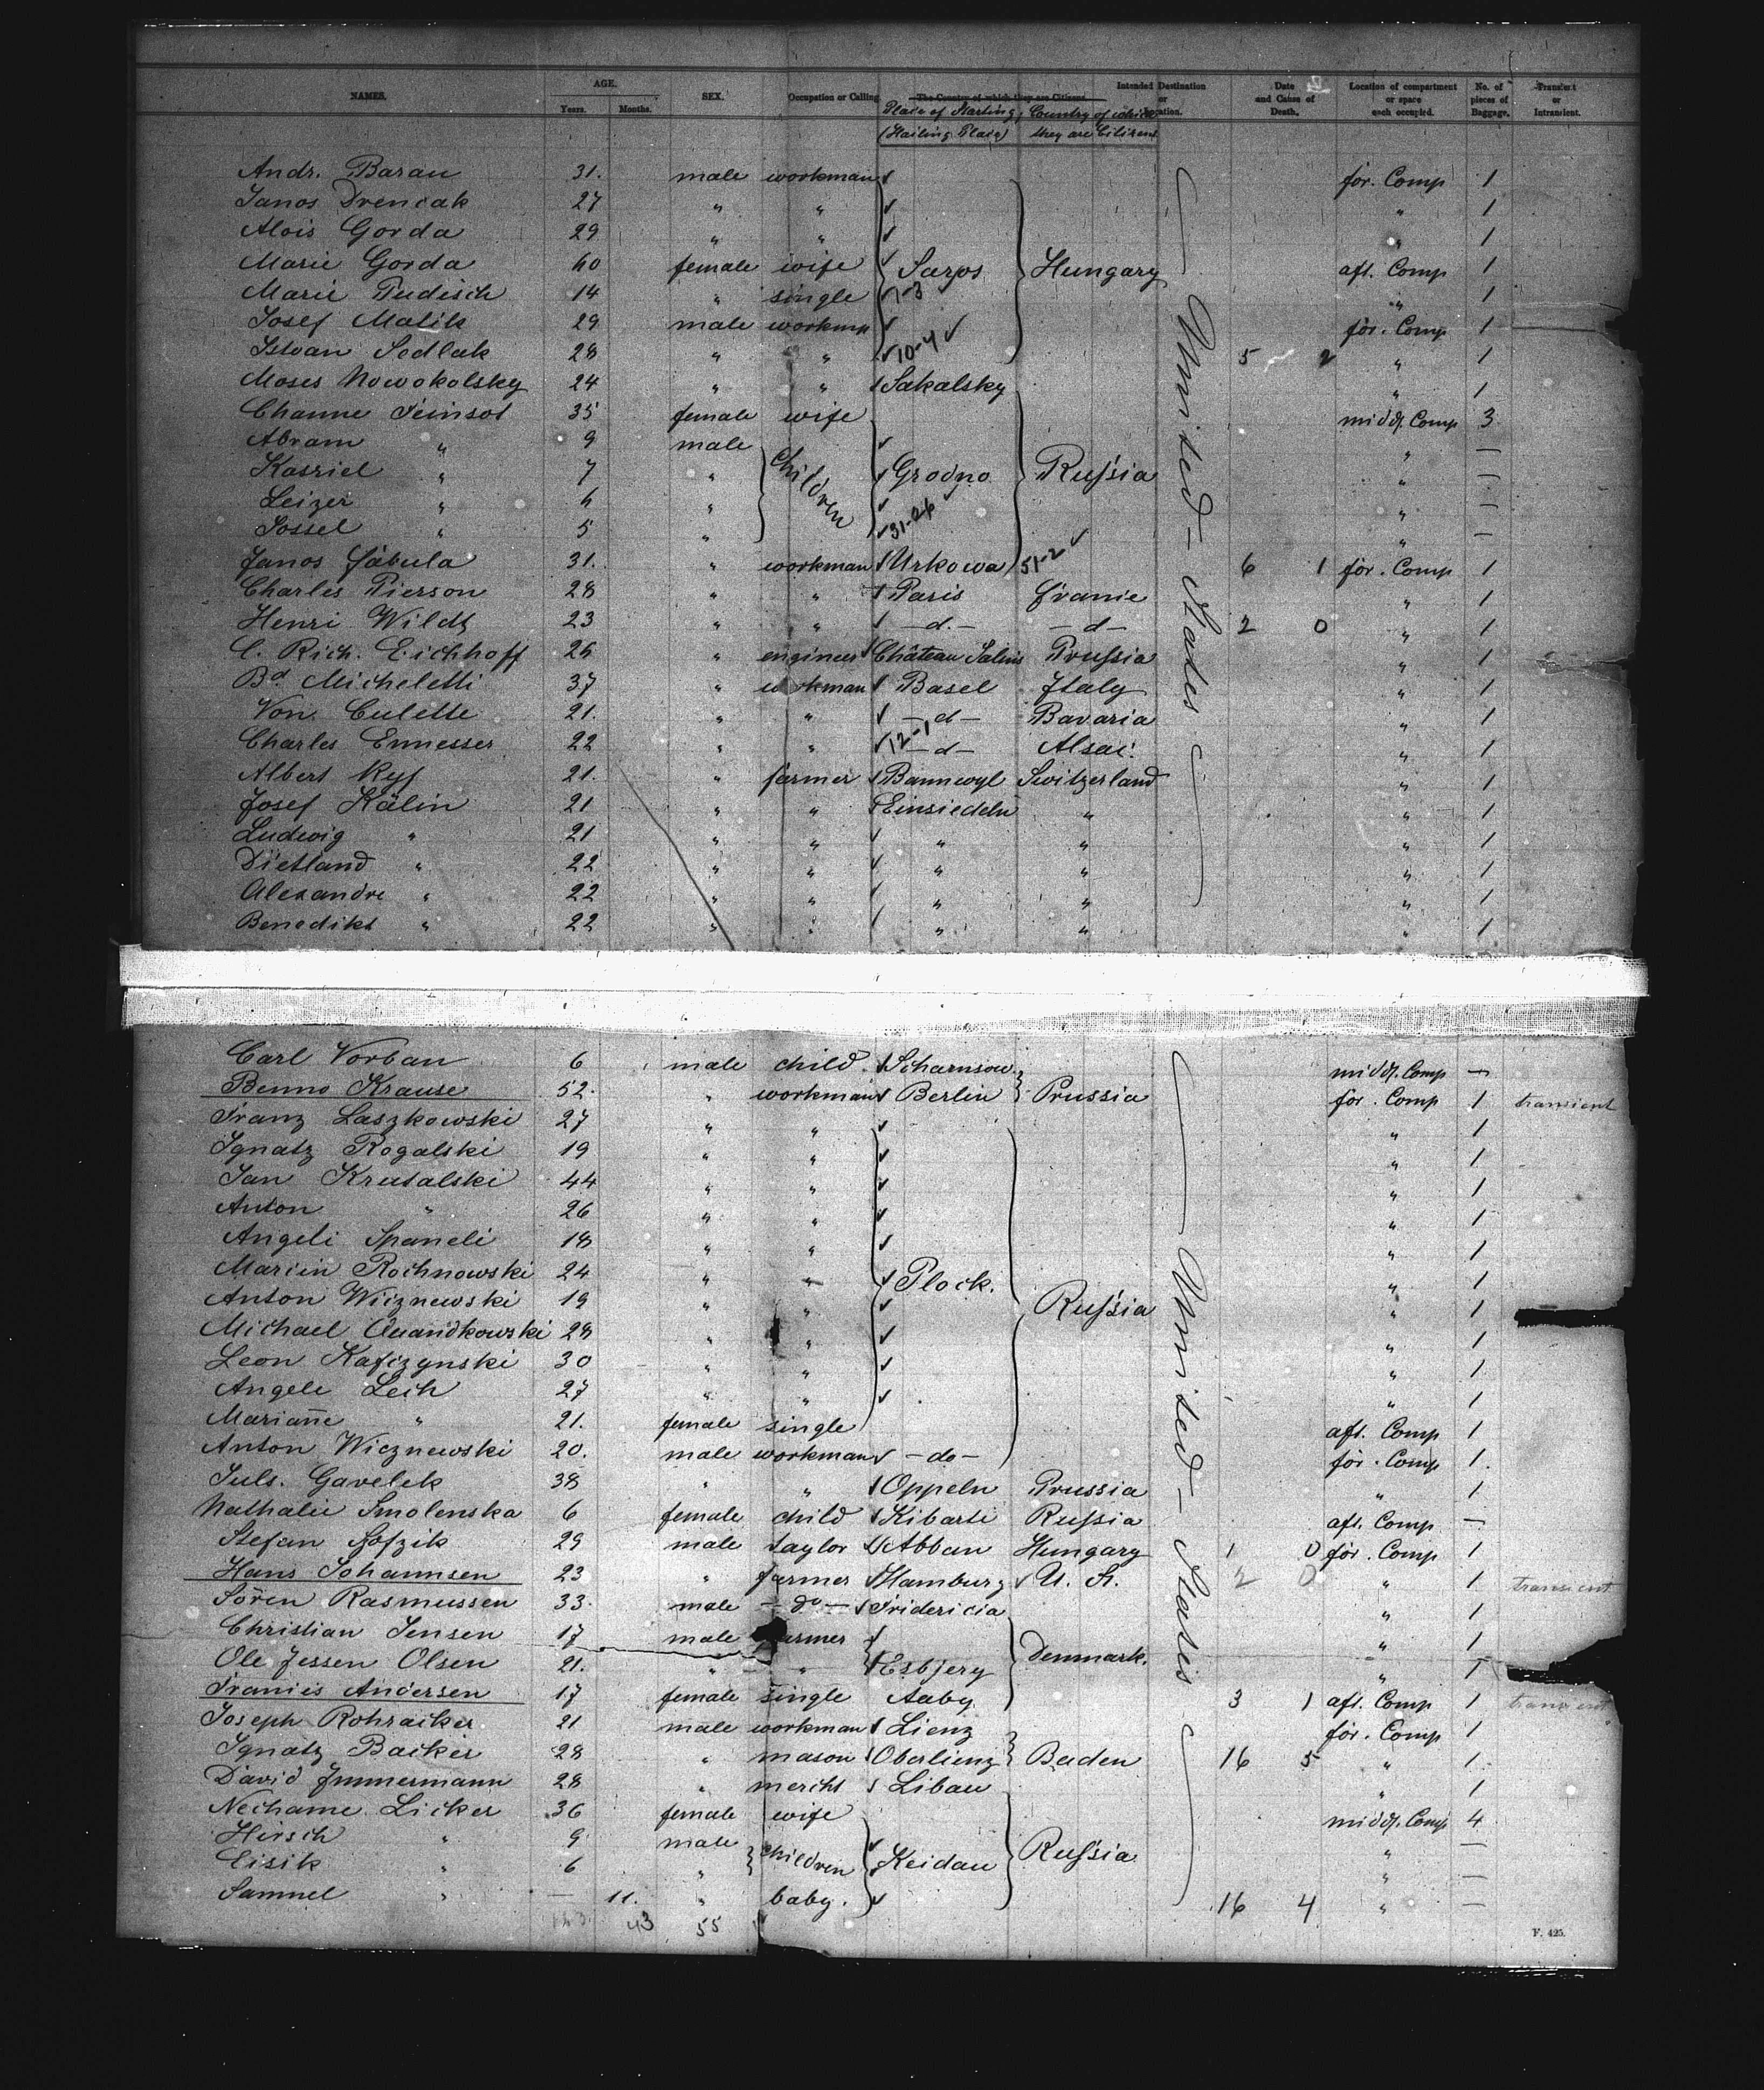 NAMES. AGE. Years. Months. SEX. Occupation or Calling. The Country of which they are Citizens. Intended Destination or Location. Date and Cause of Death. Location of compartment or space each occupied. No. of pieces of Baggage. Transient or Intransient.
Place of Starting, (Hailing Place) Country of which they are Citizens
Andr. Baran 31. male workman för. Comp 1
Janos Drenčak 27 " " " 1
Alois Gorda 29 " " " 1
Marie Gorda 60 female wife Saros Hungary aft. Comp 1
Marie Pudisch 14 " single 7-3 " 1
Josef Malik 29 male workmn för. Comp 1
Istvan Sedlak 28 " " 10-4 5 2 " 1
Moses Nowokolsky 24 " " Sakalsky " 1
Channe Feinsot 35 female wife middl. Comp 3
Abram " 9 male —
Kasriel " 7 " children Grodno Russia " —
Leizer " 6 " " —
Jossel " 5 " 31-26 " —
Janos Fabula 31. " workman Urkowa 51-2 6 1 för. Comp 1
Charles Pierson 28 " " Paris France " 1
Henri Wildt 23 " " —d.— —d— 2 0 " 1
C. Rich. Eichhoff 26 " engineer Château Salins Prussia " 1
Bd Micheletti 37 " workman Basel Italy " 1
Von. Culette 21. " " —d— Bavaria " 1
Charles Ennesser 22 " " 12-1 —d— Alsac. " 1
Albert Ryf 21. " farmer Bannwyl Switzerland " 1
Josef Kälin 21 " " Einsiedeln " " 1
Ludwig " 21 " " " " " 1
Dietland " 22 " " " " " 1
Alexandre " 22 " " " " " 1
Benedikt " 22 " " " " " 1
United States
Carl Vorban 6 male child Scharnsow middl. Comp —
Benno Krause 52. " workman Berlin Prussia för. Comp 1 transient
Franz Laszkowski 27 " " " 1
Ignatz Rogalski 19 " " " 1
Jan Krutalski 44 " " " 1
Anton " 26 " " " 1
Angeli Spaneli 18 " " " 1
Marcin Rochnowski 24 " " Plock. " 1
Anton Wicznewski 19 " " Russia " 1
Michael Quandkowski 28 " " " 1
Leon Kaficzynski 30 " " " 1
Angele Lech 27 " " " 1
Marianne " 21. female single aft. Comp 1
Anton Wicznewski 20. male workman —do— för. Comp 1.
Juls. Gavelek 38 " " Oppeln Prussia " 1
Nathalie Smolenska 6 female child Kibarti Russia aft. Comp —
Stefan Sofzik 29 male taylor Abban Hungary 1 0 för. Comp 1
Hans Johannsen 23 " farmer Hamburg U. St. 2 0 " 1 transient
Sören Rasmussen 33. male —do— Fridericia " 1
Christian Jensen 17 male farmer " 1
Ole Jessen Olsen 21. " " Esbjerg Denmark. " 1
Francis Andersen 17 female single Aaby 3 1 aft. Comp 1 transient
Joseph Rohracker 21 male workman Lienz för. Comp 1
Ignatz Backer 28 " mason Oberlienz Baden 16 5 " 1.
David Immermann 28 " mercht Libau " 1
Nechame Licker 36 female wife middl. Comp 4
Hirsch " 9 male children Keidan Russia " —
Eisik " 6 " " —
Samuel " — 11. " baby. 16 4 " —
43 55
United States
F. 425.